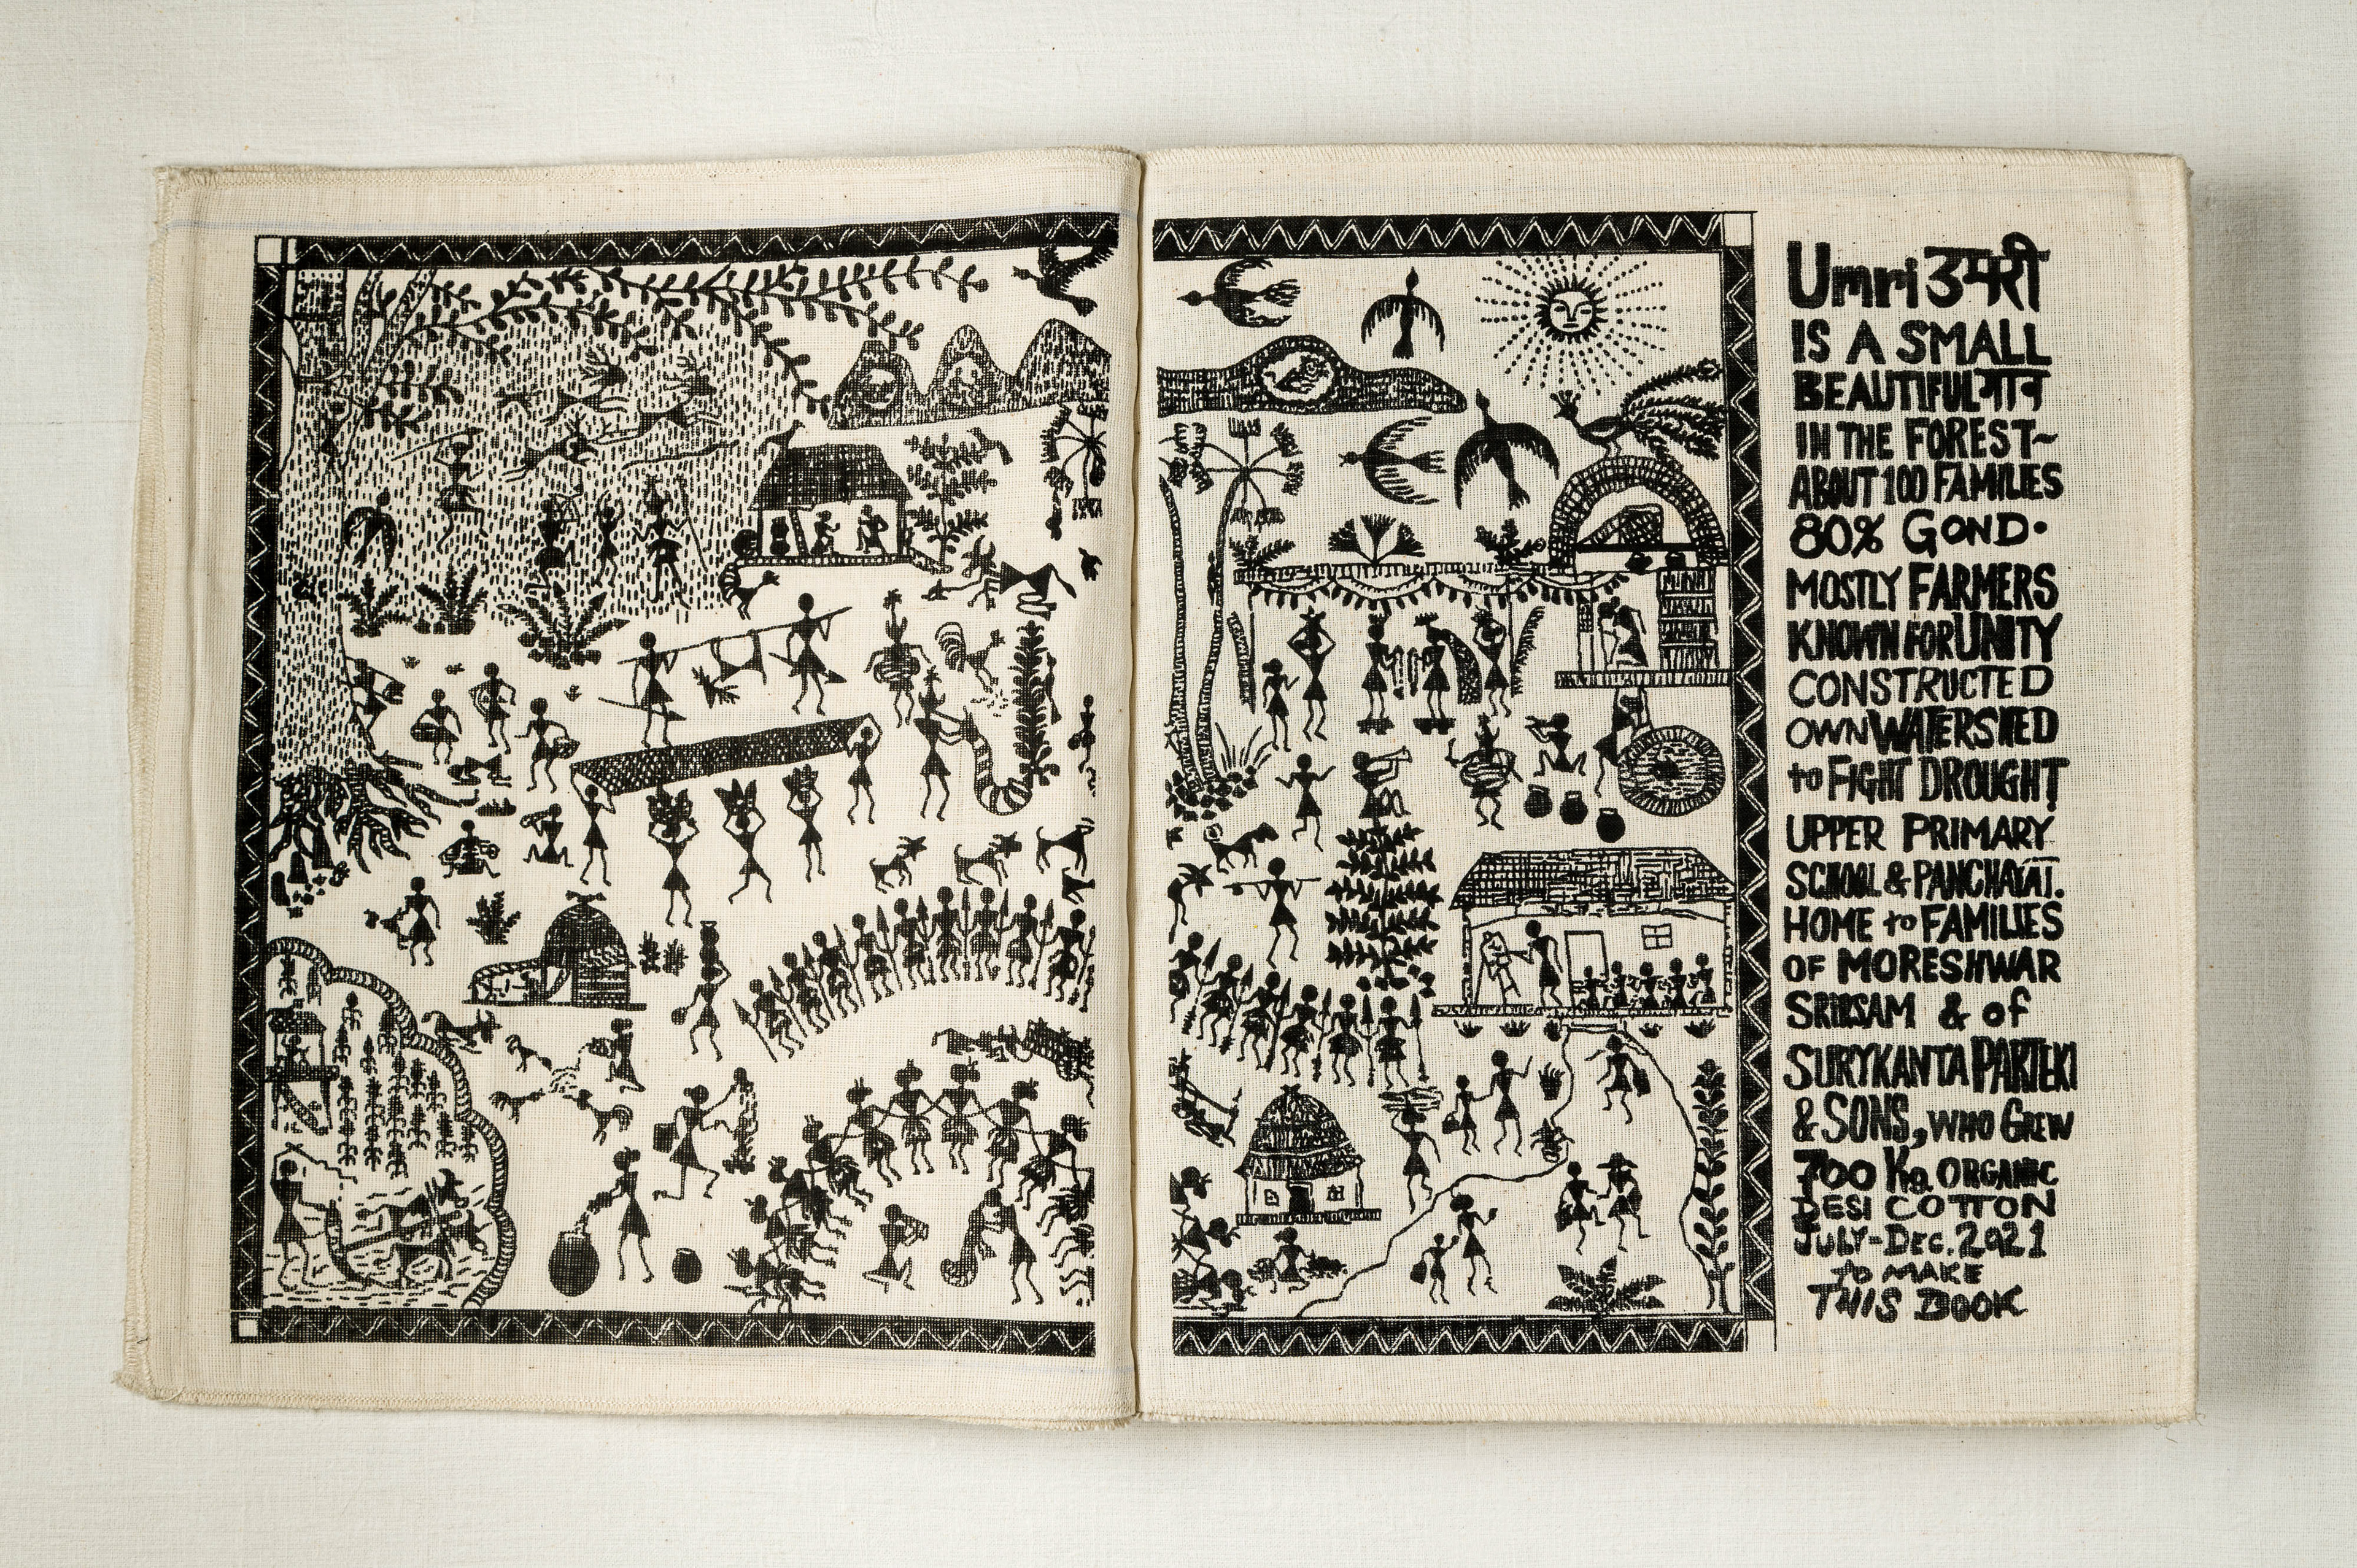 Umri उमरी
IS A SMALL
BEAUTIFUL गाव
IN THE FOREST~
ABOUT 100 FAMILIES
80% GOND.
MOSTLY FARMERS
KNOWN FOR UNITY
CONSTRUCTED
OWN WATERSHED
to FIGHT DROUGHT
UPPER PRIMARY
SCHOOL & PANCHAYAT.
HOME to FAMILIES
OF MORESHWAR
& of
SURYKANTA PARTEKI
& SONS, WHO GREW
700 Kg. ORGANIC
DESI COTTON
JULY-DEC. 2021
to MAKE
THIS BOOK